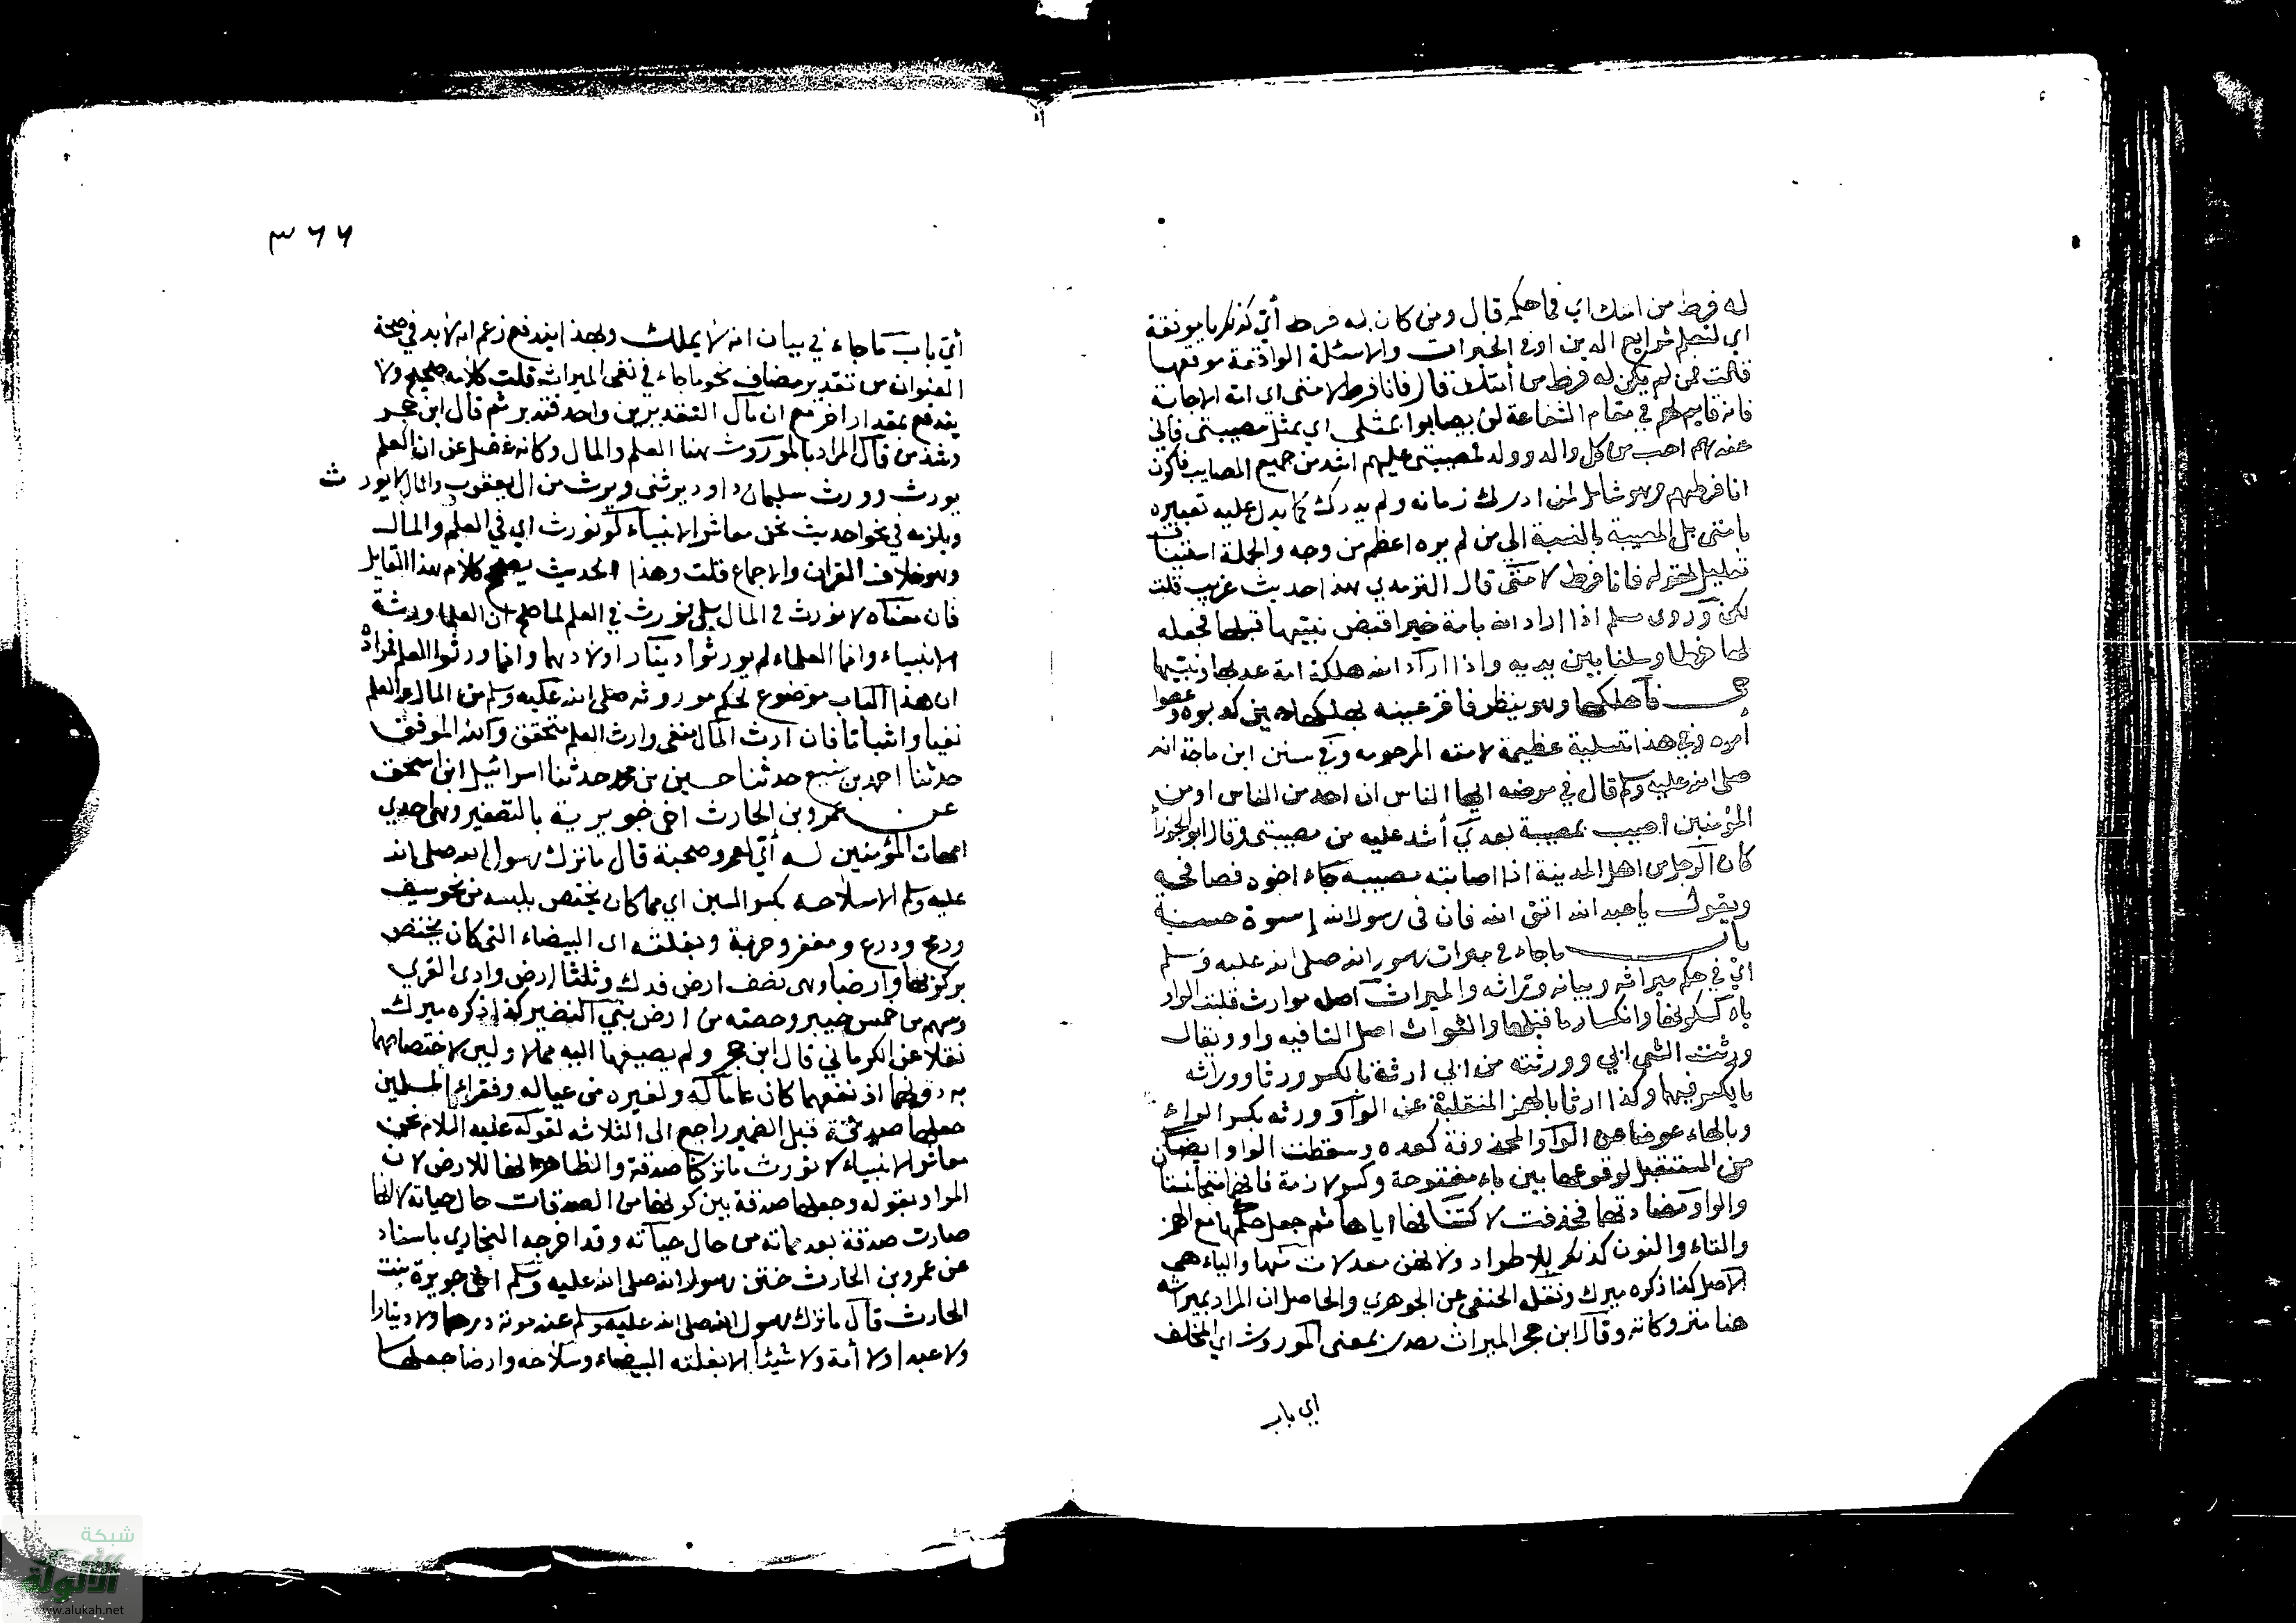 له فرط من امتك اي فما حكمه قال ومن كان له فرط أي كذلك يا موفقة
اي لتعلم شرايع الدين او في الخيرات والاسئلة الواقعة موقعها
قالت فمن لم يكن له فرط من أمتك قال فانا فرط لامتي اي امة الاجابة
فانه قايم لهم في مقام الشفاعة لن يصابوا بمثلي اي بمثل مصيبتي فاني
عندهم احب من كل والد وولد فمصيبتي عليهم اشد من جميع المصايب فاكون
انا فرطهم وهو شامل لمن ادرك زمانه ولم يدرك كما يدل عليه تعبيره
بامتي بل المصيبة بالنسبة الي من لم يره اعظم من وجه والجملة استيناف
تعليل لقوله فانا فرط لامتي قال الترمذي هذا حديث غريب قلت
لكن روى مسلم اذا اراد الله بامة خيرا قبض نبيها قبلها فجعله
لها فرطا وسلفا بين يديه واذا اراد الله هلكة امة عذبها ونبيها
حي فاهلكها وهو ينظر فاقر عينه بهلكها حين كذبوه وعصوا
أمره وفي هذا تسلية عظيمة لامته المرحومه وفي سنن ابن ماجة انه
صلى الله عليه وسلم قال في مرضه ايها الناس ان احد من الناس او من
المؤمنين اصيب بمصيبة بعدي أشد عليه من مصيبتي وقال ابو الجوزأ
كان الرجل من اهل المدينة اذا اصابته مصيبة جاء اخوه فصافحه
ويقول يا عبد الله اتق الله فان في رسول الله إسوة حسنة
باب ماجاء في ميراث رسول الله صلى الله عليه وسلم
اي في حكم ميراثه وبيانه وتراثه والميراث اصله موارث قلبت الواو
ياء لسكونها وانكسار ما قبلها والتراث اصل التا فيه واو ويقال
ورثت الشي ابي وورثته من ابي ارثه بالكسر ورثا ووراثه
بالكسر فيهما وكذا ارثا بالهمز المنقلبة عن الواو ورثه بكسر الواو
وبالهاء عوضا عن الواو المحذوفة كعده وسقطت الواو ايضا
من المستقبل لوقوعها بين ياء مفتوحة وكسرة لازمة فانهما متجانستا
والواو مضادتهما فحذفت لاكتنافهما اياها ثم جعل حكمها مع الهمز
والتاء والنون كذلك للاطراد ولانهن مبدلات منها والياء هي
الاصل كذا ذكره ميرك ونقله الحنفي عن الجوهري والحاصل ان المراد بميراثه
هنا متروكاته وقال ابن حجر الميراث مصدر بمعنى الموروث اي المخلف
اي باب
٣٦٦
أي باب ما جاء في بيان انه لا يملك وبهذا يندفع زعم انه لا بد في صحة
العنوان من تقدير مضاف نحو ما جاء في نفي الميراث قلت كلامه صحيح ولا
يندفع بمقدار اخر مع ان مآل التقديرين واحد فتدبر ثم قال ابن حجر
وشذ من قال المراد بالموروث هنا العلم والمال وكانه غفل عن ان العلم
يورث وورث سليمان داود يرثني ويرث من ال يعقوب والمال لا يورث
ويلزمه في نحو حديث نحن معاشر الانبياء لا نورث اي في العلم والمال
وهو خلاف القران والاجماع قلت وهذا الحديث يصحح كلام هذا القايل
فان معناه لا نورث في المال بل نورث في العلم لما صح ان العلما ورثة
الانبياء وانما العلماء لم يورثوا دينارا ولا درهما وانما ورثوا العلم فمراده
ان هذا الباب موضوع لحكم موروثه صلى الله عليه وسلم من المال والعلم
نفيا واثباتا فان ارث المال منفي وارث العلم متحقق والله الموفق
حدثنا احمد بن منيع حدثنا حسين بن محمد حدثنا اسرائيل ابي اسحق
عن عمرو بن الحارث اخي جويرية بالتصغير وهي احدي
امهات المؤمنين له أي لعمرو صحبة قال ما ترك رسول الله صلى الله
عليه وسلم الا سلاحه بكسر السين اي مما كان يختص بلبسه من نحو سيف
ورمح ودرع ومغفر وحربة وبغلته اي البيضاء التي كان يختص
بركوبها وارضا وهي نصف ارض فدك وثلث ارض وادى القري
وسهم من خمس خيبر وحصته من ارض بني النضير كذا ذكره ميرك
نقلا عن الكرماني قال ابن حجر ولم يضيفها اليه كالاولين لاختصاصهما
به دونها اذ نفعها كان عاما له ولغيره من عياله وفقراء المسلمين
جعلها صدقة قيل الضمير راجع الى الثلاثه لقوله عليه السلام نحن
معاشر الانبياء لا نورث ما تركنا صدقة والظاهر انها للارض لان
المراد بقوله وجعلها صدقة بين كونها من الصدقات حال حياته لا انها
صارت صدقة بعد مماته من حال حياته وقد اخرجه البخاري باسناد
عن عمرو بن الحارث ختن رسول الله صلى الله عليه وسلم اخي جويرة بنت
الحارث قال ما ترك رسول الله صلى الله عليه وسلم عند موته درهما ولا دينارا
ولا عبدا ولا أمة ولا شيئا الا بغلته البيضاء وسلاحه وارضا جعلها
شبكة
الألوكة
www.alukah.net